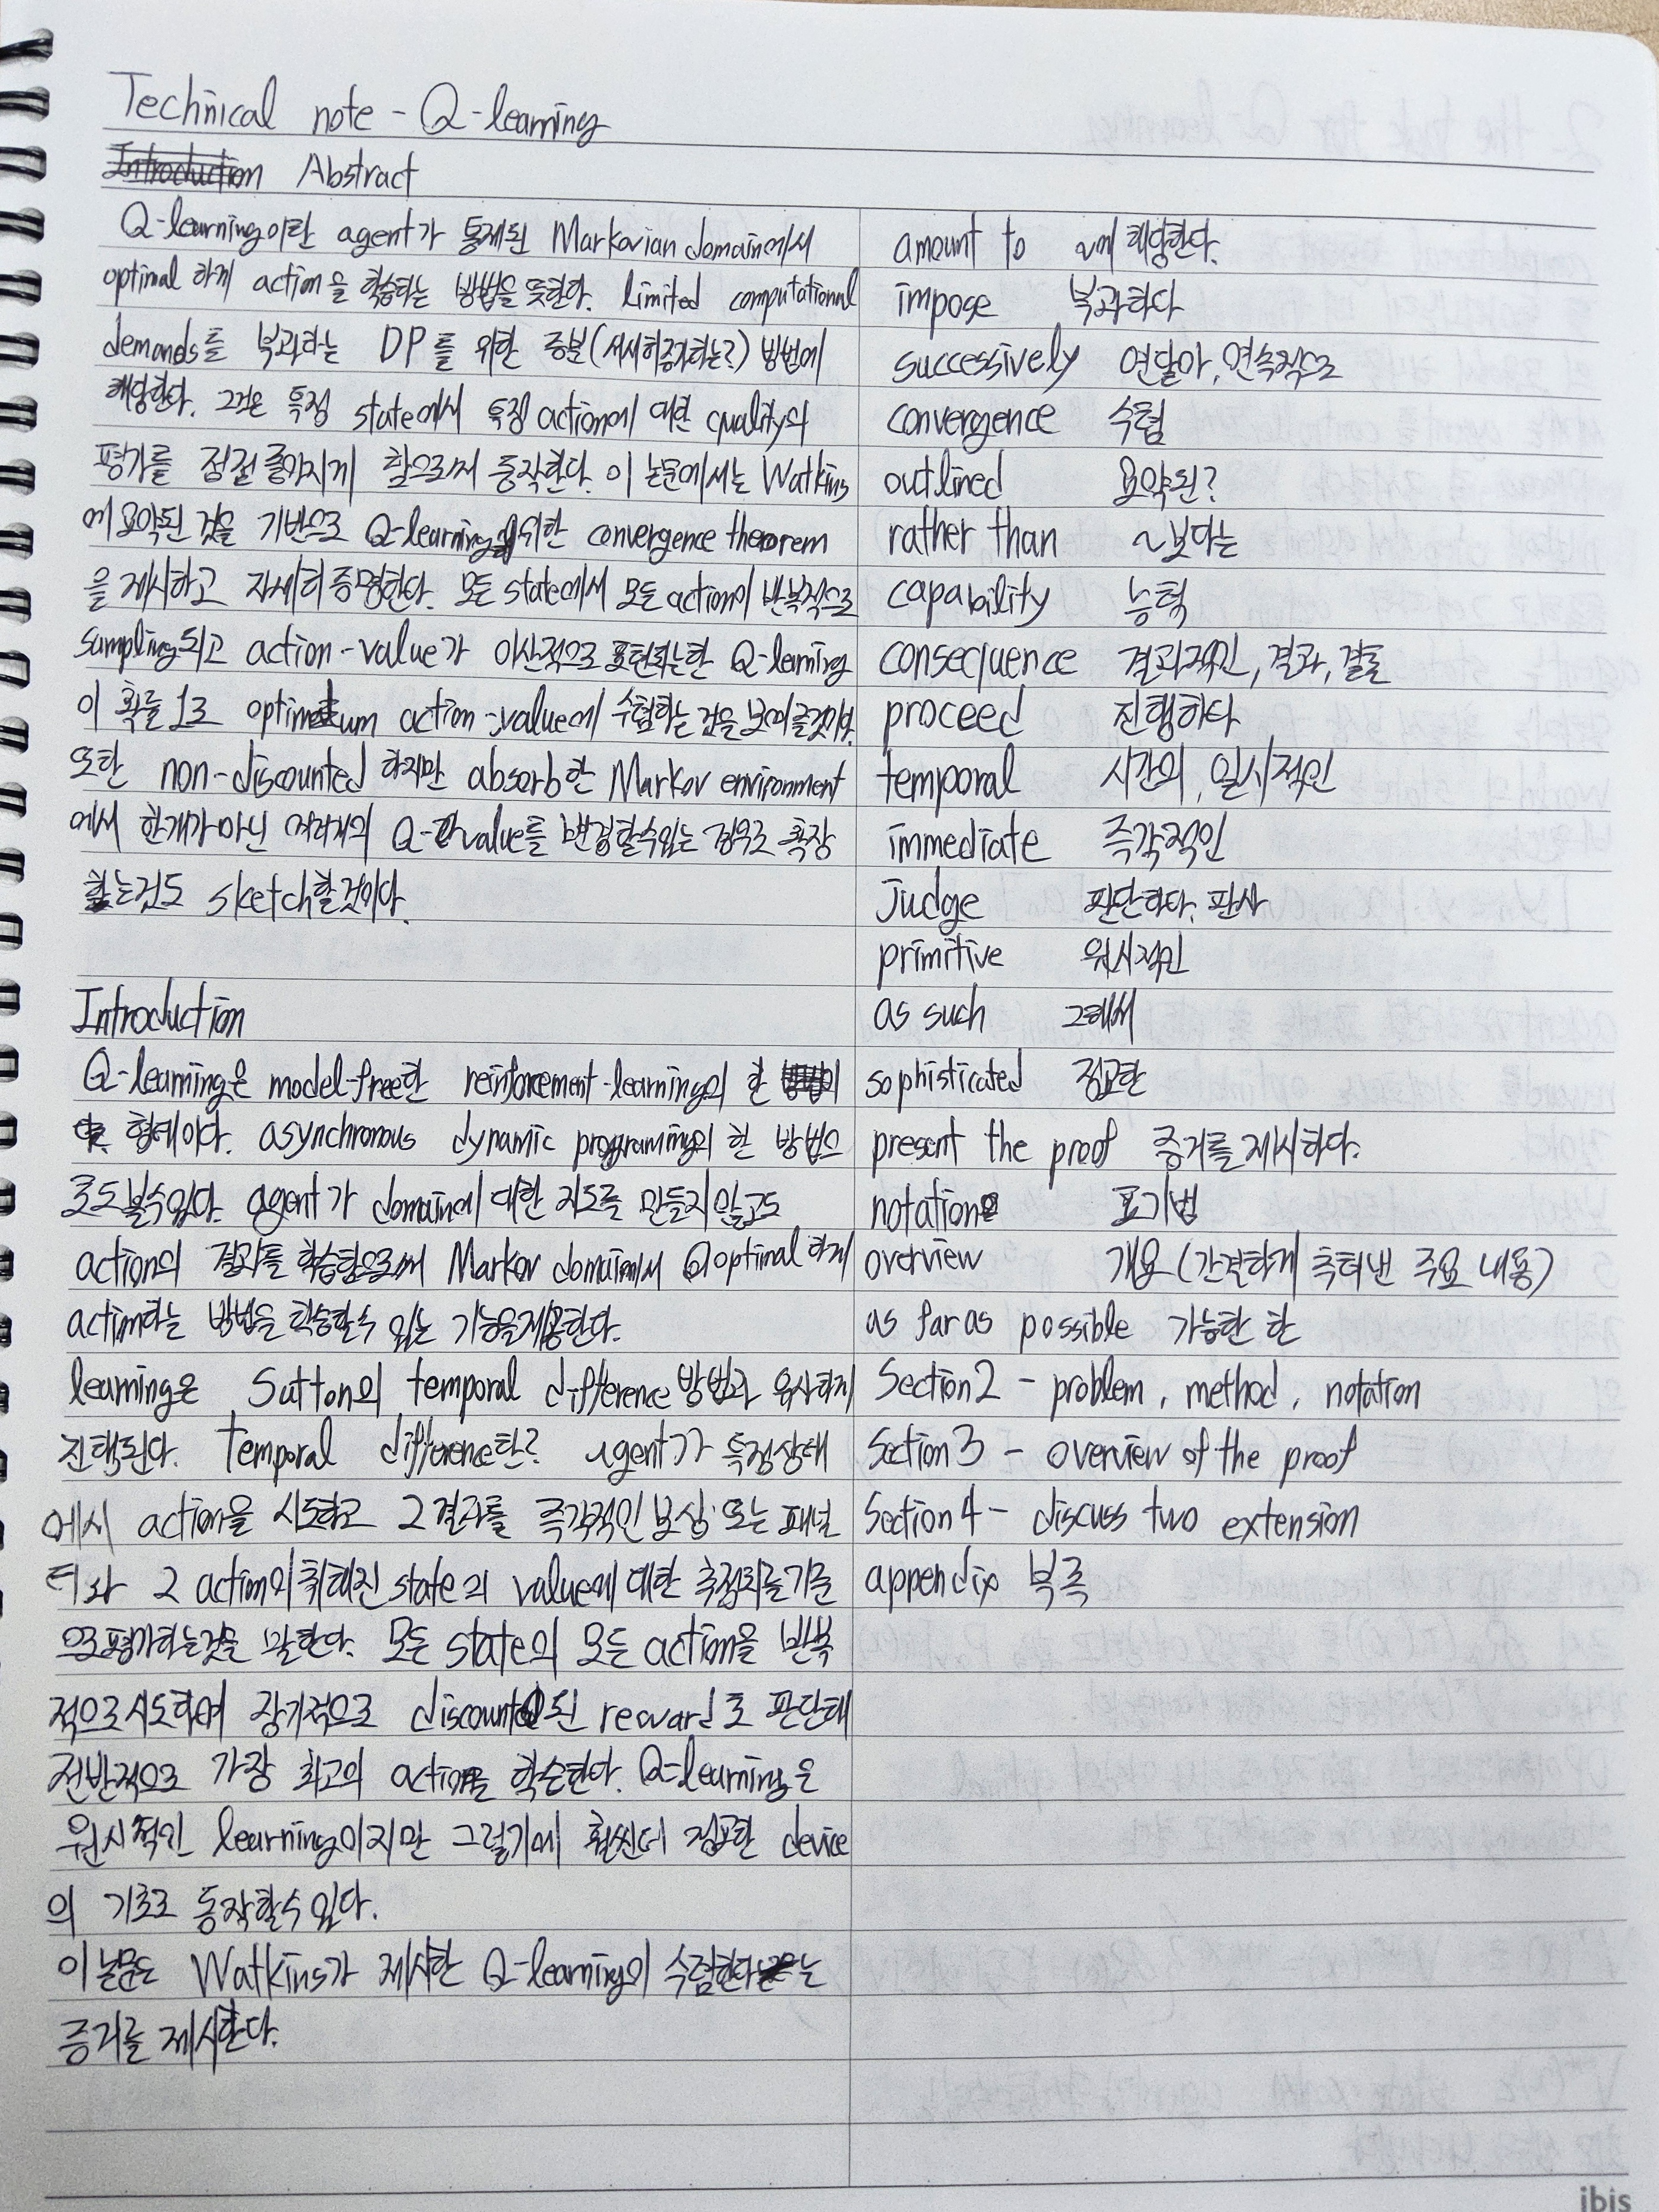 Technical note - Q-learning
Introduction Abstract
Q-learning이란 agent가 통제된 Markovian domain에서
optimal 하게 action을 학습하는 방법을 뜻한다. limited computational
demands를 부과하는 DP를 위한 증분(서서히증가하는?) 방법에
해당한다. 그것은 특정 state에서 특정 action에 대한 quality의
평가를 점점 좋아지게 함으로써 동작한다. 이 논문에서는 Watkins
에 요약된 것을 기반으로 Q-learning을위한 convergence theorem
을 제시하고 자세히 증명한다. 모든 state에서 모든 action이 반복적으로
sampling되고 action-value가 이산적으로 표현되는한 Q-learning
이 확률 1로 optimum action-value에 수렴하는 것을 보여줄것이다.
또한 non-discounted 하지만 absorb한 Markov environment
에서 한개가아닌 여러개의 Q-value를 변경할수있는 경우로 확장
하는것도 sketch할것이다.
Introduction
Q-learning은 model-free한 reinforcement-learning의 한
형태이다. asynchronous dynamic programming의 한 방법으
로도볼수있다. agent가 domain에 대한 지도를 만들지않고도
action의 결과를 학습함으로써 Markov domain에서 optimal하게
action하는 방법을 학습할수 있는 기능을제공한다.
learning은 Sutton의 temporal difference 방법과 유사하게
진행된다. Temporal difference란? agent가 특정상태
에서 action을 시도하고 그결과를 즉각적인 보상 또는 패널
티와 그 action이취해진 state의 value에 대한 추정치를기준
으로평가하는것을 말한다. 모든 state의 모든 action을 반복
적으로시도하여 장기적으로 discount된 reward로 판단해
전반적으로 가장 최고의 action을 학습한다. Q-learning은
원시적인 learning이지만 그렇기에 훨씬더 정교한 device
의 기초로 동작할수있다.
이논문은 Watkins가 제시한 Q-learning이 수렴한다는
증거를 제시한다.
amount to ~에 해당한다.
impose 부과하다
successively 연달아, 연속적으로
convergence 수렴
outlined 요약된?
rather than ~보다는
capability 능력
consequence 결과적인, 결과, 결론
proceed 진행하다
temporal 시간의, 일시적인
immediate 즉각적인
Judge 판단하다, 판사
primitive 원시적인
as such 그래서
sophisticated 정교한
present the proof 증거를제시하다.
notation 표기법
overview 개요(간결하게 추려낸 주요 내용)
as far as possible 가능한 한
Section2 - problem, method, notation
Section3 - overview of the proof
Section4 - discuss two extension
appendix 부록
ibis